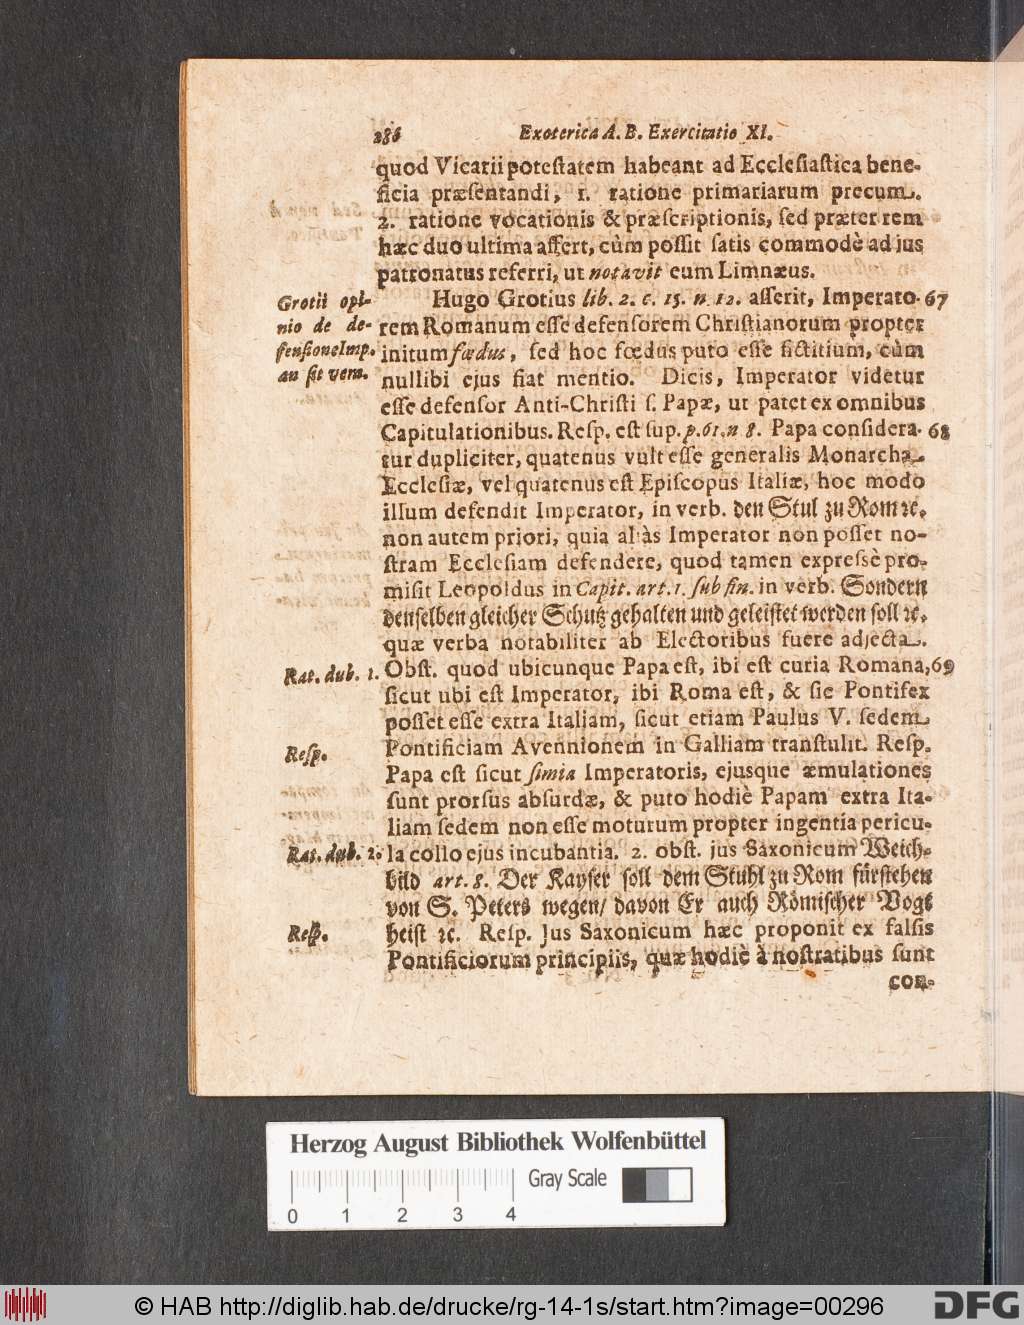 286 Exoterica A. B. Exercitatio XI.
quod Vicarii potestatem habeant ad Ecclesiastica bene-
ficia præsentandi, 1. ratione primariarum precum.
2. ratione vocationis & præscriptionis, sed præter rem
hæc duo ultima affert, cùm possit satis commodè ad jus
patronatus referri, ut notavit eum Limnæus.
Grotii opi-
nio de de-
fensione Imp.
an sit vera.
Hugo Grotius lib. 2. c. 15. n. 12. asserit, Imperato- 67
rem Romanum esse defensorem Christianorum propter
initum fœdus, sed hoc fœdus puto esse fictitium, cùm
nullibi ejus fiat mentio. Dicis, Imperator videtur
esse defensor Anti-Christi s. Papæ, ut patet ex omnibus
Capitulationibus. Resp. est sup. p. 61. n 8. Papa considera- 68
tur dupliciter, quatenus vult esse generalis Monarcha
Ecclesiæ, vel quatenus est Episcopus Italiæ, hoc modo
illum defendit Imperator, in verb. den Stul zu Rom ꝛc.
non autem priori, quia aliàs Imperator non posset no-
stram Ecclesiam defendere, quod tamen expressè pro-
misit Leopoldus in Capit. art. 1. sub fin. in verb. Sondern
denselben gleicher Schutz gehalten und geleistet werden soll ꝛc.
quæ verba notabiliter ab Electoribus fuere adjecta.
Rat. dub. 1. Obst. quod ubicunque Papa est, ibi est curia Romana, 69
sicut ubi est Imperator, ibi Roma est, & sic Pontifex
posset esse extra Italiam, sicut etiam Paulus V. sedem
Resp. Pontificiam Avennionem in Galliam transtulit. Resp.
Papa est sicut simia Imperatoris, ejusque æmulationes
sunt prorsus absurdæ, & puto hodiè Papam extra Ita-
liam sedem non esse moturum propter ingentia pericu-
Rat. dub. 2. la collo ejus incubantia. 2. obst. jus Saxonicum Weich-
bild art. 8. Der Kayser soll dem Stuhl zu Rom fürstehen
von S. Peters wegen/ davon Er auch Römischer Vogt
Resp. heist ꝛc. Resp. Jus Saxonicum hæc proponit ex falsis
Pontificiorum principiis, quæ hodiè à nostratibus sunt
con-
Herzog August Bibliothek Wolfenbüttel
Gray Scale
0 1 2 3 4
© HAB http://diglib.hab.de/drucke/rg-14-1s/start.htm?image=00296
DFG